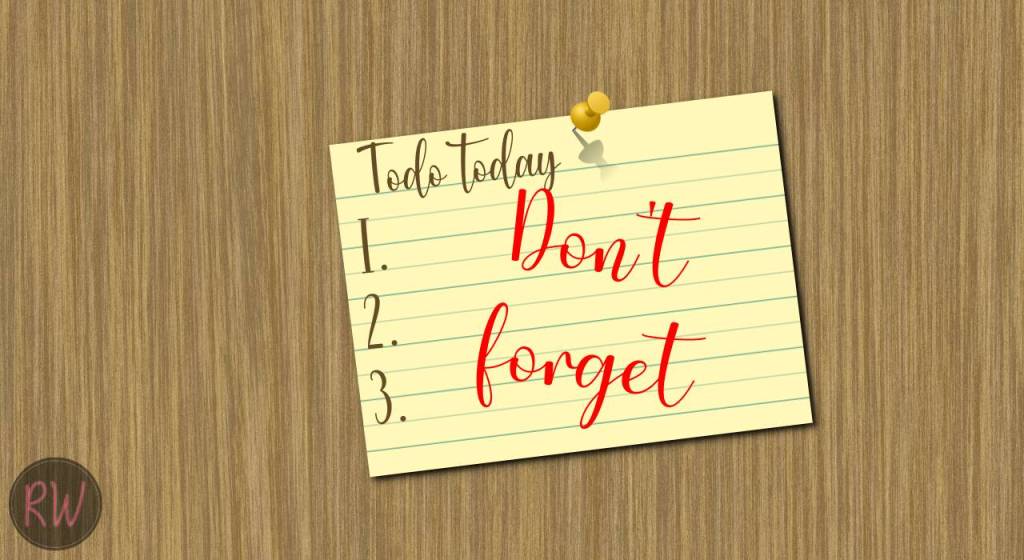 Todo today
1.
2.
3.
Don't
forget
RW